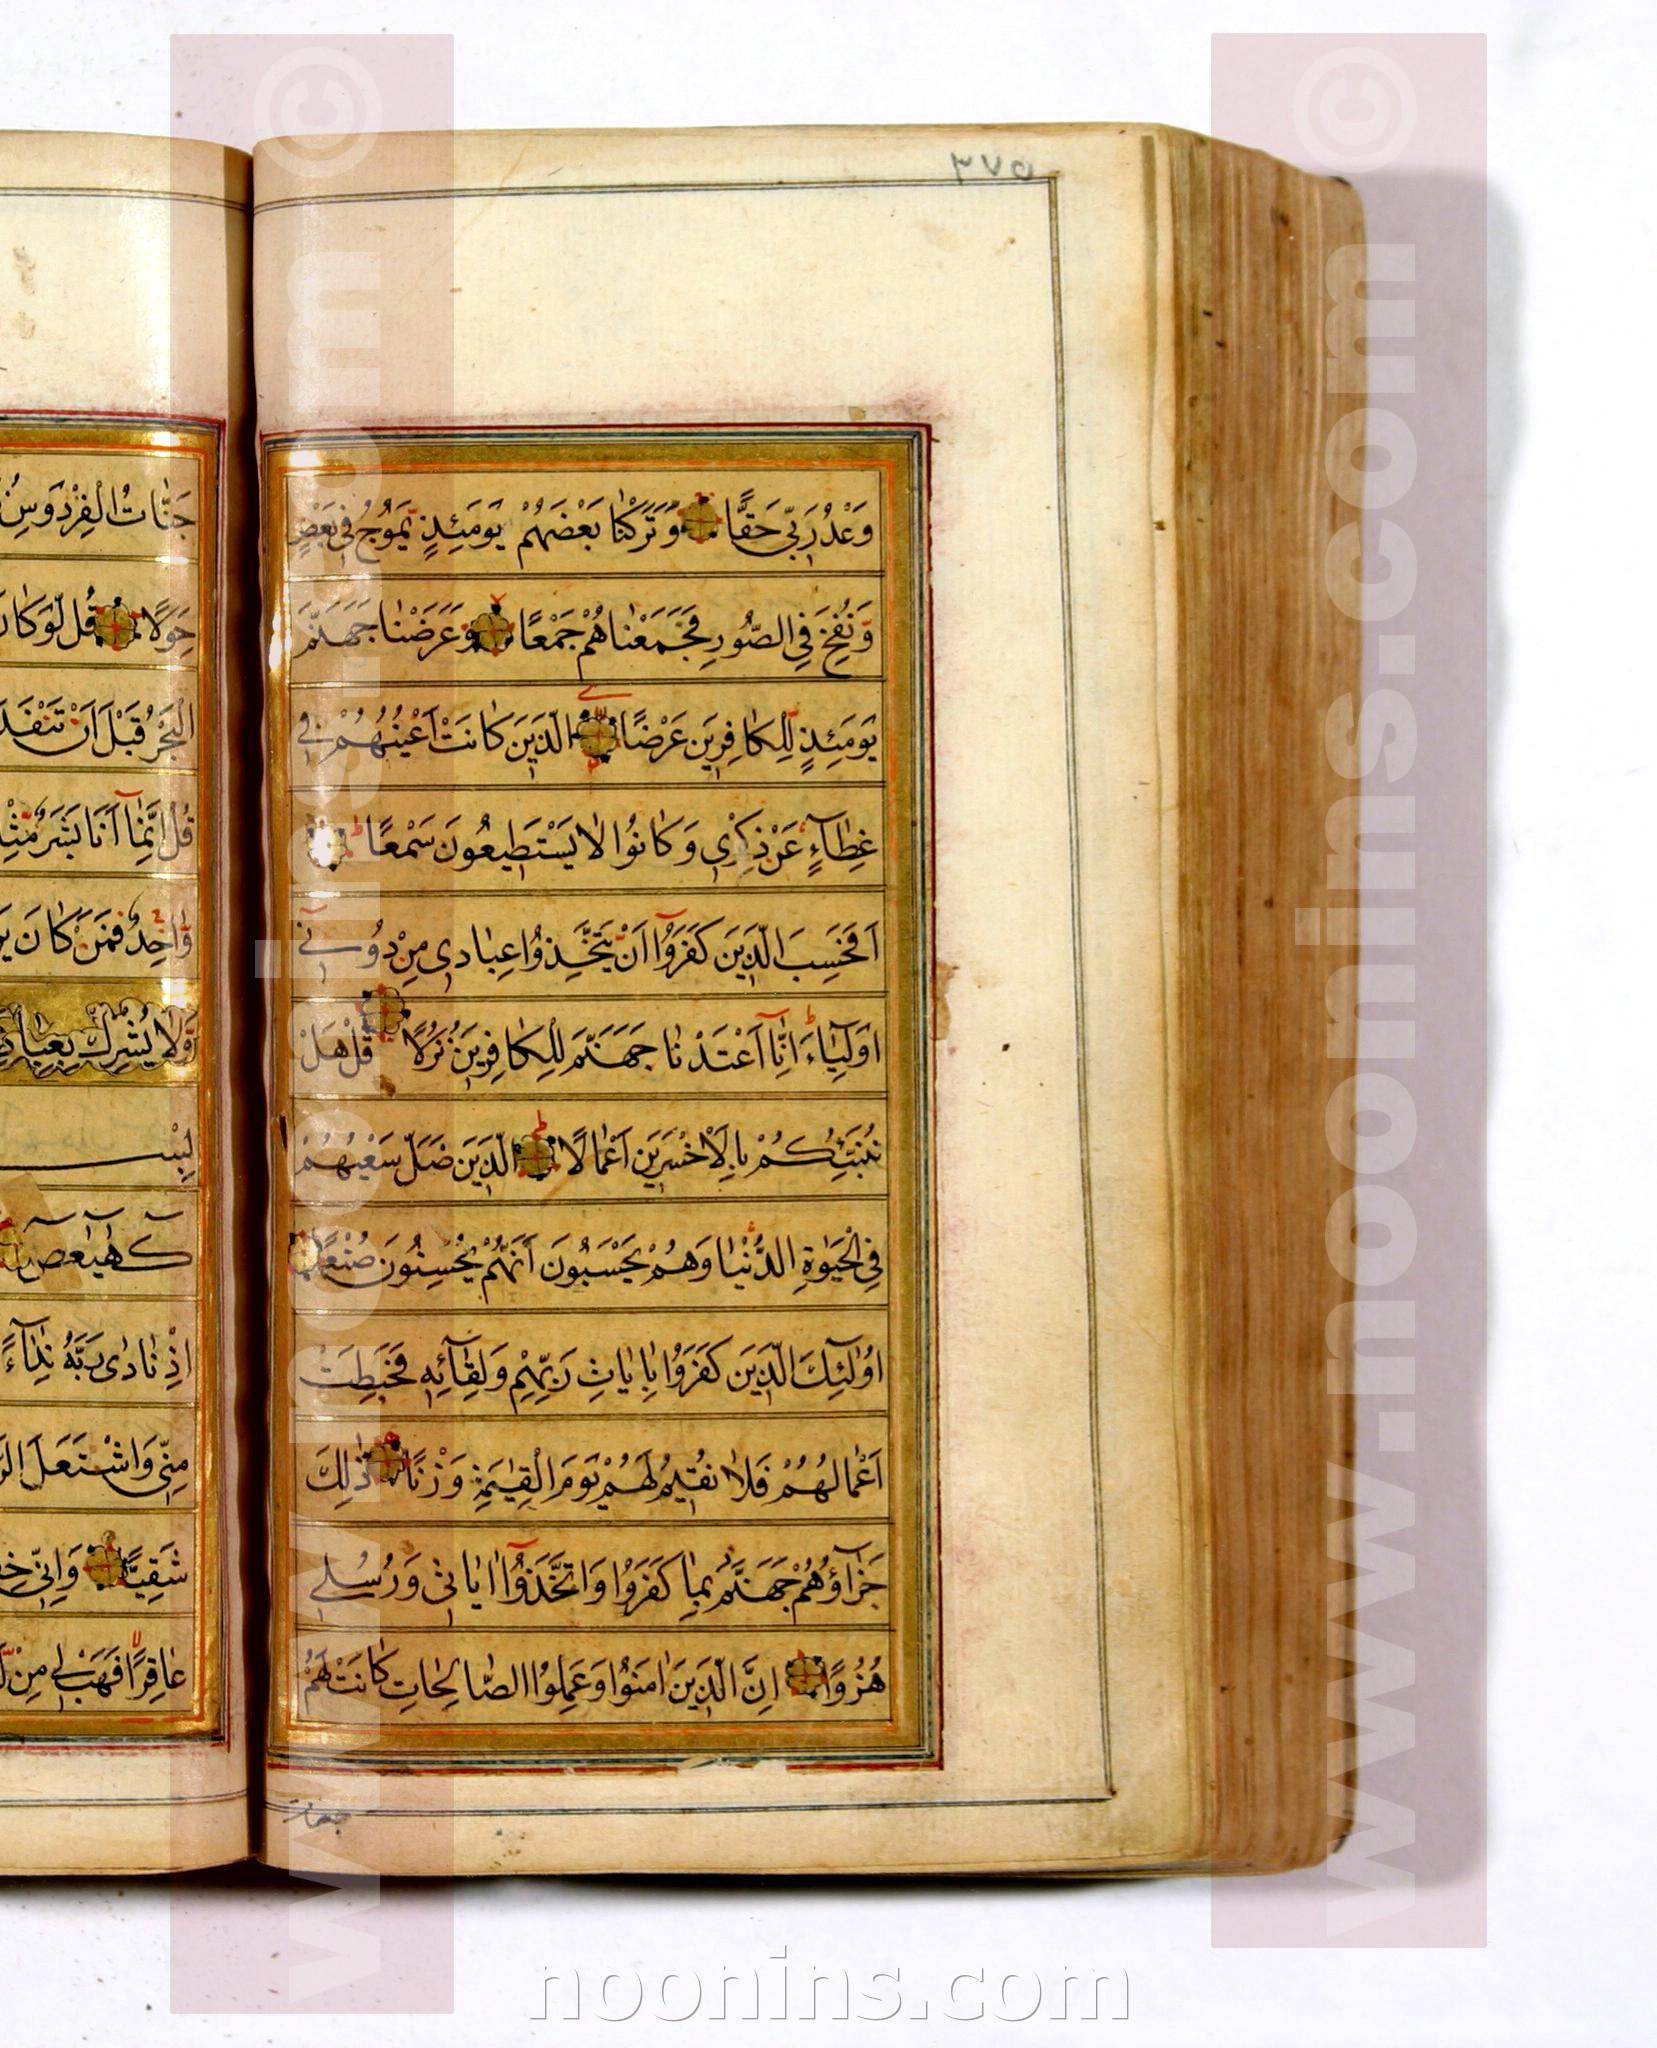 وَعْدُ رَبّى حَقًّا وَتَرَكْنٰا بَعْضَهُمْ يَوْمَئِذٍ يَمُوجُ فى بَعْضٍ
وَنُفِخَ فِى الصُّورِ فَجَمَعْنٰاهُمْ جَمْعًا وَعَرَضْنٰا جَهَنَّمَ
يَوْمَئِذٍ لِلْكٰافِرينَ عَرْضًا الَّذينَ كٰانَتْ اَعْيُنُهُمْ فى
غِطٰآءٍ عَنْ ذِكْرى وَكٰانُوا لٰا يَسْتَطيعُونَ سَمْعًا
اَفَحَسِبَ الَّذينَ كَفَرُوٓا اَنْ يَتَّخِذُوا عِبٰادى مِنْ دُونىٓ
اَوْلِيٰآءَ اِنّٰآ اَعْتَدْنٰا جَهَنَّمَ لِلْكٰافِرينَ نُزُلًا قُلْ هَلْ
نُنَبِّئُكُمْ بِالْاَخْسَرينَ اَعْمٰالًا الَّذينَ ضَلَّ سَعْيُهُمْ
فِى الْحَيٰوةِ الدُّنْيٰا وَهُمْ يَحْسَبُونَ اَنَّهُمْ يُحْسِنُونَ صُنْعًا
اُولٰٓئِكَ الَّذينَ كَفَرُوا بِاٰيٰاتِ رَبِّهِمْ وَلِقٰآئِهِ فَحَبِطَتْ
اَعْمٰالُهُمْ فَلٰا نُقيمُ لَهُمْ يَوْمَ الْقِيٰمَةِ وَزْنًا ذٰلِكَ
جَزٰآؤُهُمْ جَهَنَّمُ بِمٰا كَفَرُوا وَاتَّخَذُوٓا اٰيٰاتى وَرُسُلى
هُزُوًا اِنَّ الَّذينَ اٰمَنُوا وَعَمِلُوا الصّٰالِحٰاتِ كٰانَتْ لَهُمْ
جنات
جَنّٰاتُ الْفِرْدَوْسِ
حِوَلًا قُلْ لَوْ كٰانَ
الْبَحْرُ قَبْلَ اَنْ تَنْفَدَ
قُلْ اِنَّمٰآ اَنَا بَشَرٌ مِثْلُ
وٰاحِدٌ فَمَنْ كٰانَ
وَلٰا يُشْرِكْ بِعِبٰادَ
بِسْـ
كٓهٰيٰعٓصٓ
اِذْ نٰادٰى رَبَّهُ نِدٰآءً
مِنّى وَاشْتَعَلَ الرَّ
شَقِيًّا وَاِنّى خِفْ
عٰاقِرًا فَهَبْ لى مِنْ لَ
www.noonins.com ©
www.noonins.com ©
noonins.com